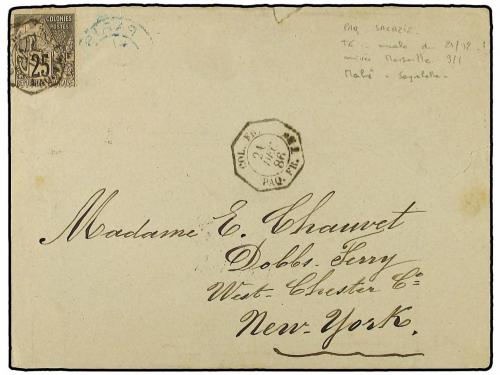 COLONIES
POSTES
25
PAQ. SALAZIE
21/12
Marseille 9/1
Mahé - Seychelles
COL. FR.
21
DEC
86
PAQ. FR.
Madame E. Chauvet
Dobbs-Ferry
West-Chester Co
New-York.